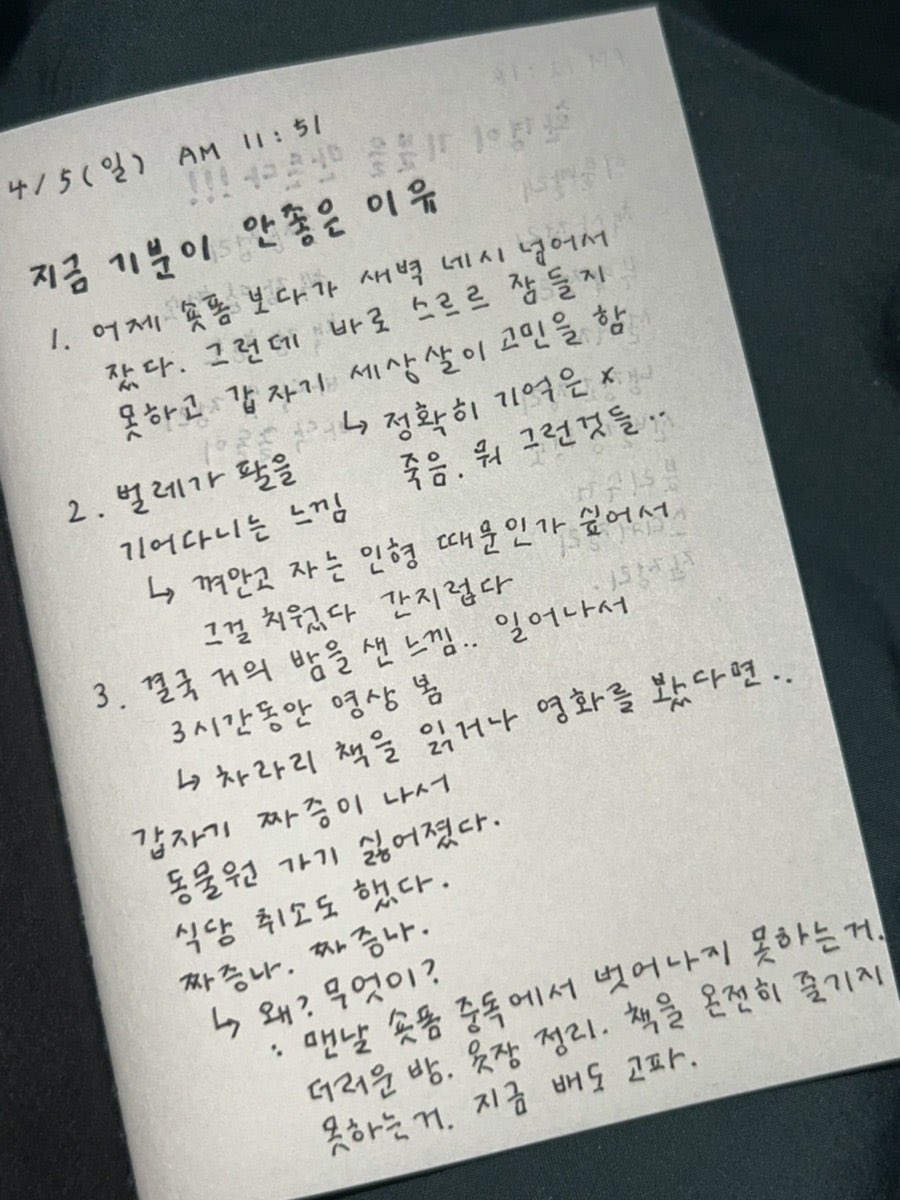 4/5(일) AM 11:51
지금 기분이 안좋은 이유
1. 어제 숏폼 보다가 새벽 네시 넘어서
잤다. 그런데 바로 스르르 잠들지
못하고 갑자기 세상살이 고민을 함
↳ 정확히 기억은 x
죽음. 뭐 그런것들..
2. 벌레가 팔을
기어다니는 느낌
↳ 껴안고 자는 인형 때문인가 싶어서
그걸 치웠다 간지럽다
3. 결국 거의 밤을 샌 느낌.. 일어나서
3시간동안 영상 봄
↳ 차라리 책을 읽거나 영화를 봤다면..
갑자기 짜증이 나서
동물원 가기 싫어졌다.
식당 취소도 했다.
짜증나. 짜증나.
↳ 왜? 무엇이?
: 맨날 숏폼 중독에서 벗어나지 못하는거.
더러운 방. 옷장 정리. 책을 온전히 즐기지
못하는거. 지금 배도 고파.